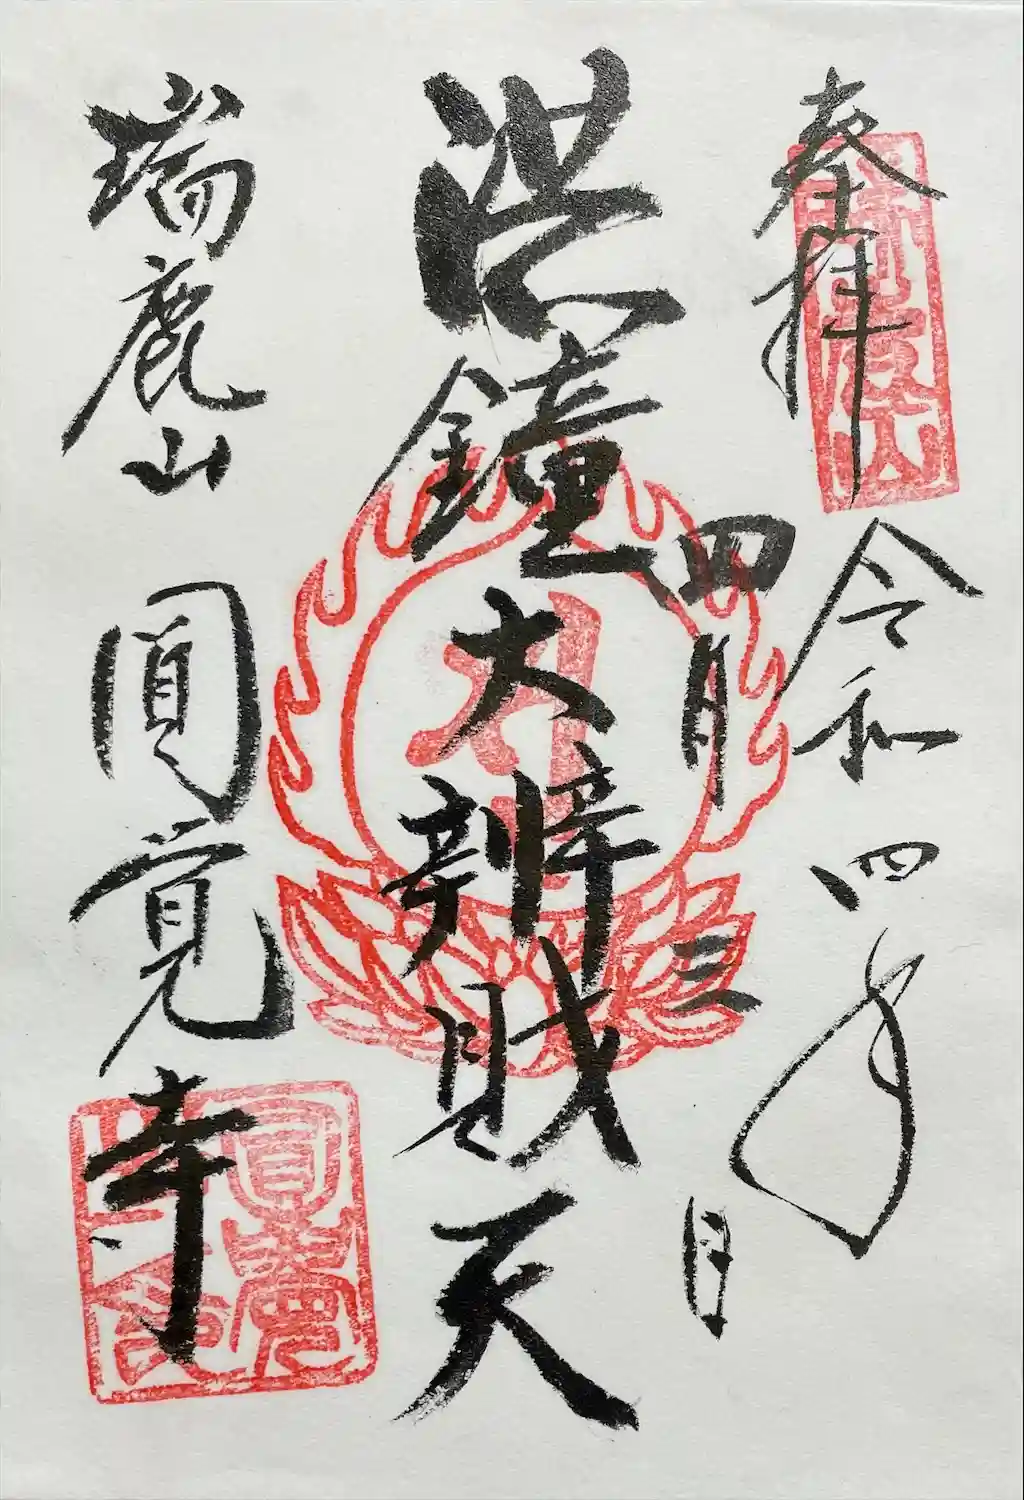 奉拝
令和四年
四月三日
洪鐘
大辨財天
瑞鹿山
圓覚寺